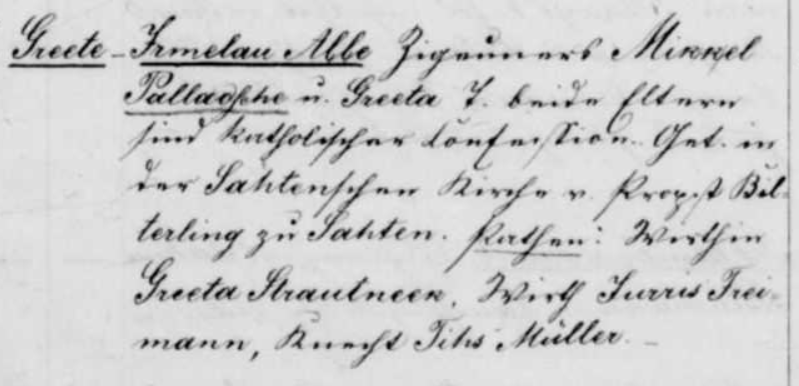 Greete - Irmelau Abbe Zigeuners Mikkel
Palladsche u. Greeta T. beide Eltern
sind katholischer Confession. Get. in
der Sahtenschen Kirche v. Propst Bil-
terling zu Sahten. Pathen: Wirthin
Greeta Strautneek, Wirth Jurris Frei-
mann, Knecht Tihs Müller.